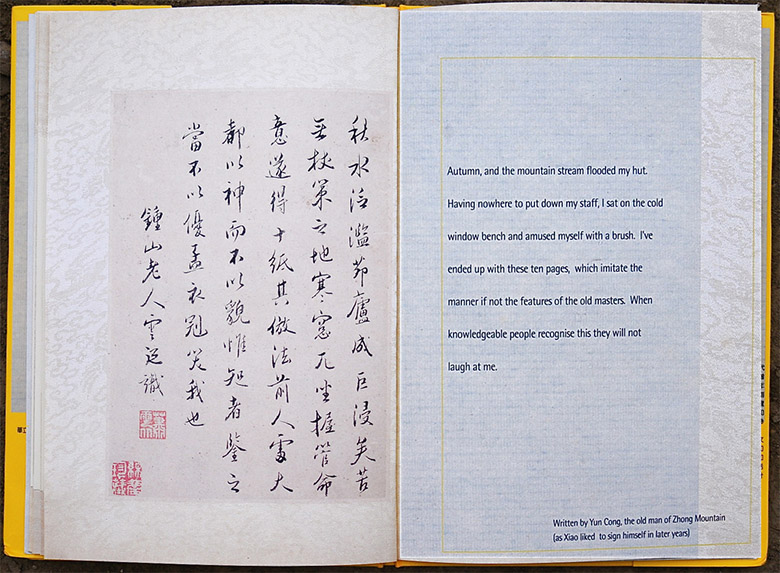 秋水泛濫茆廬成巨浸矣苦
無杖策之地寒窓兀坐握管命
意遂得十紙其倣法前人處大
都以神而不以貌惟知者鑒之
當不以優孟衣冠笑我也
鍾山老人雲從識
Autumn, and the mountain stream flooded my hut.
Having nowhere to put down my staff, I sat on the cold
window bench and amused myself with a brush. I've
ended up with these ten pages, which imitate the
manner if not the features of the old masters. When
knowledgeable people recognise this they will not
laugh at me.
Written by Yun Cong, the old man of Zhong Mountain
(as Xiao liked to sign himself in later years)